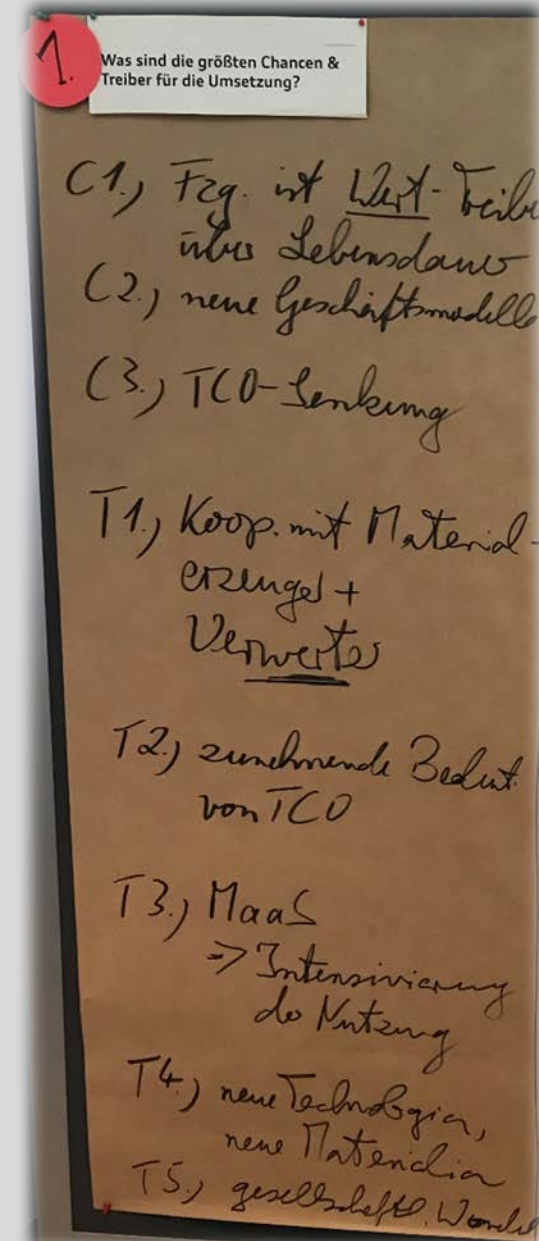 1.
Was sind die größten Chancen &
Treiber für die Umsetzung?
C1.) Fzg. ist Wert-Treibe
über Lebensdauer
C2.) neue Geschäftsmodelle
C3.) TCO-Senkung
T1.) Koop. mit Material-
erzeuger +
Verwerter
T2.) zunehmende Bedeut.
von TCO
T3.) MaaS
=> Intensivierung
der Nutzung
T4.) neue Technologien,
neue Materialien
T5.) gesellschaftl. Wandel